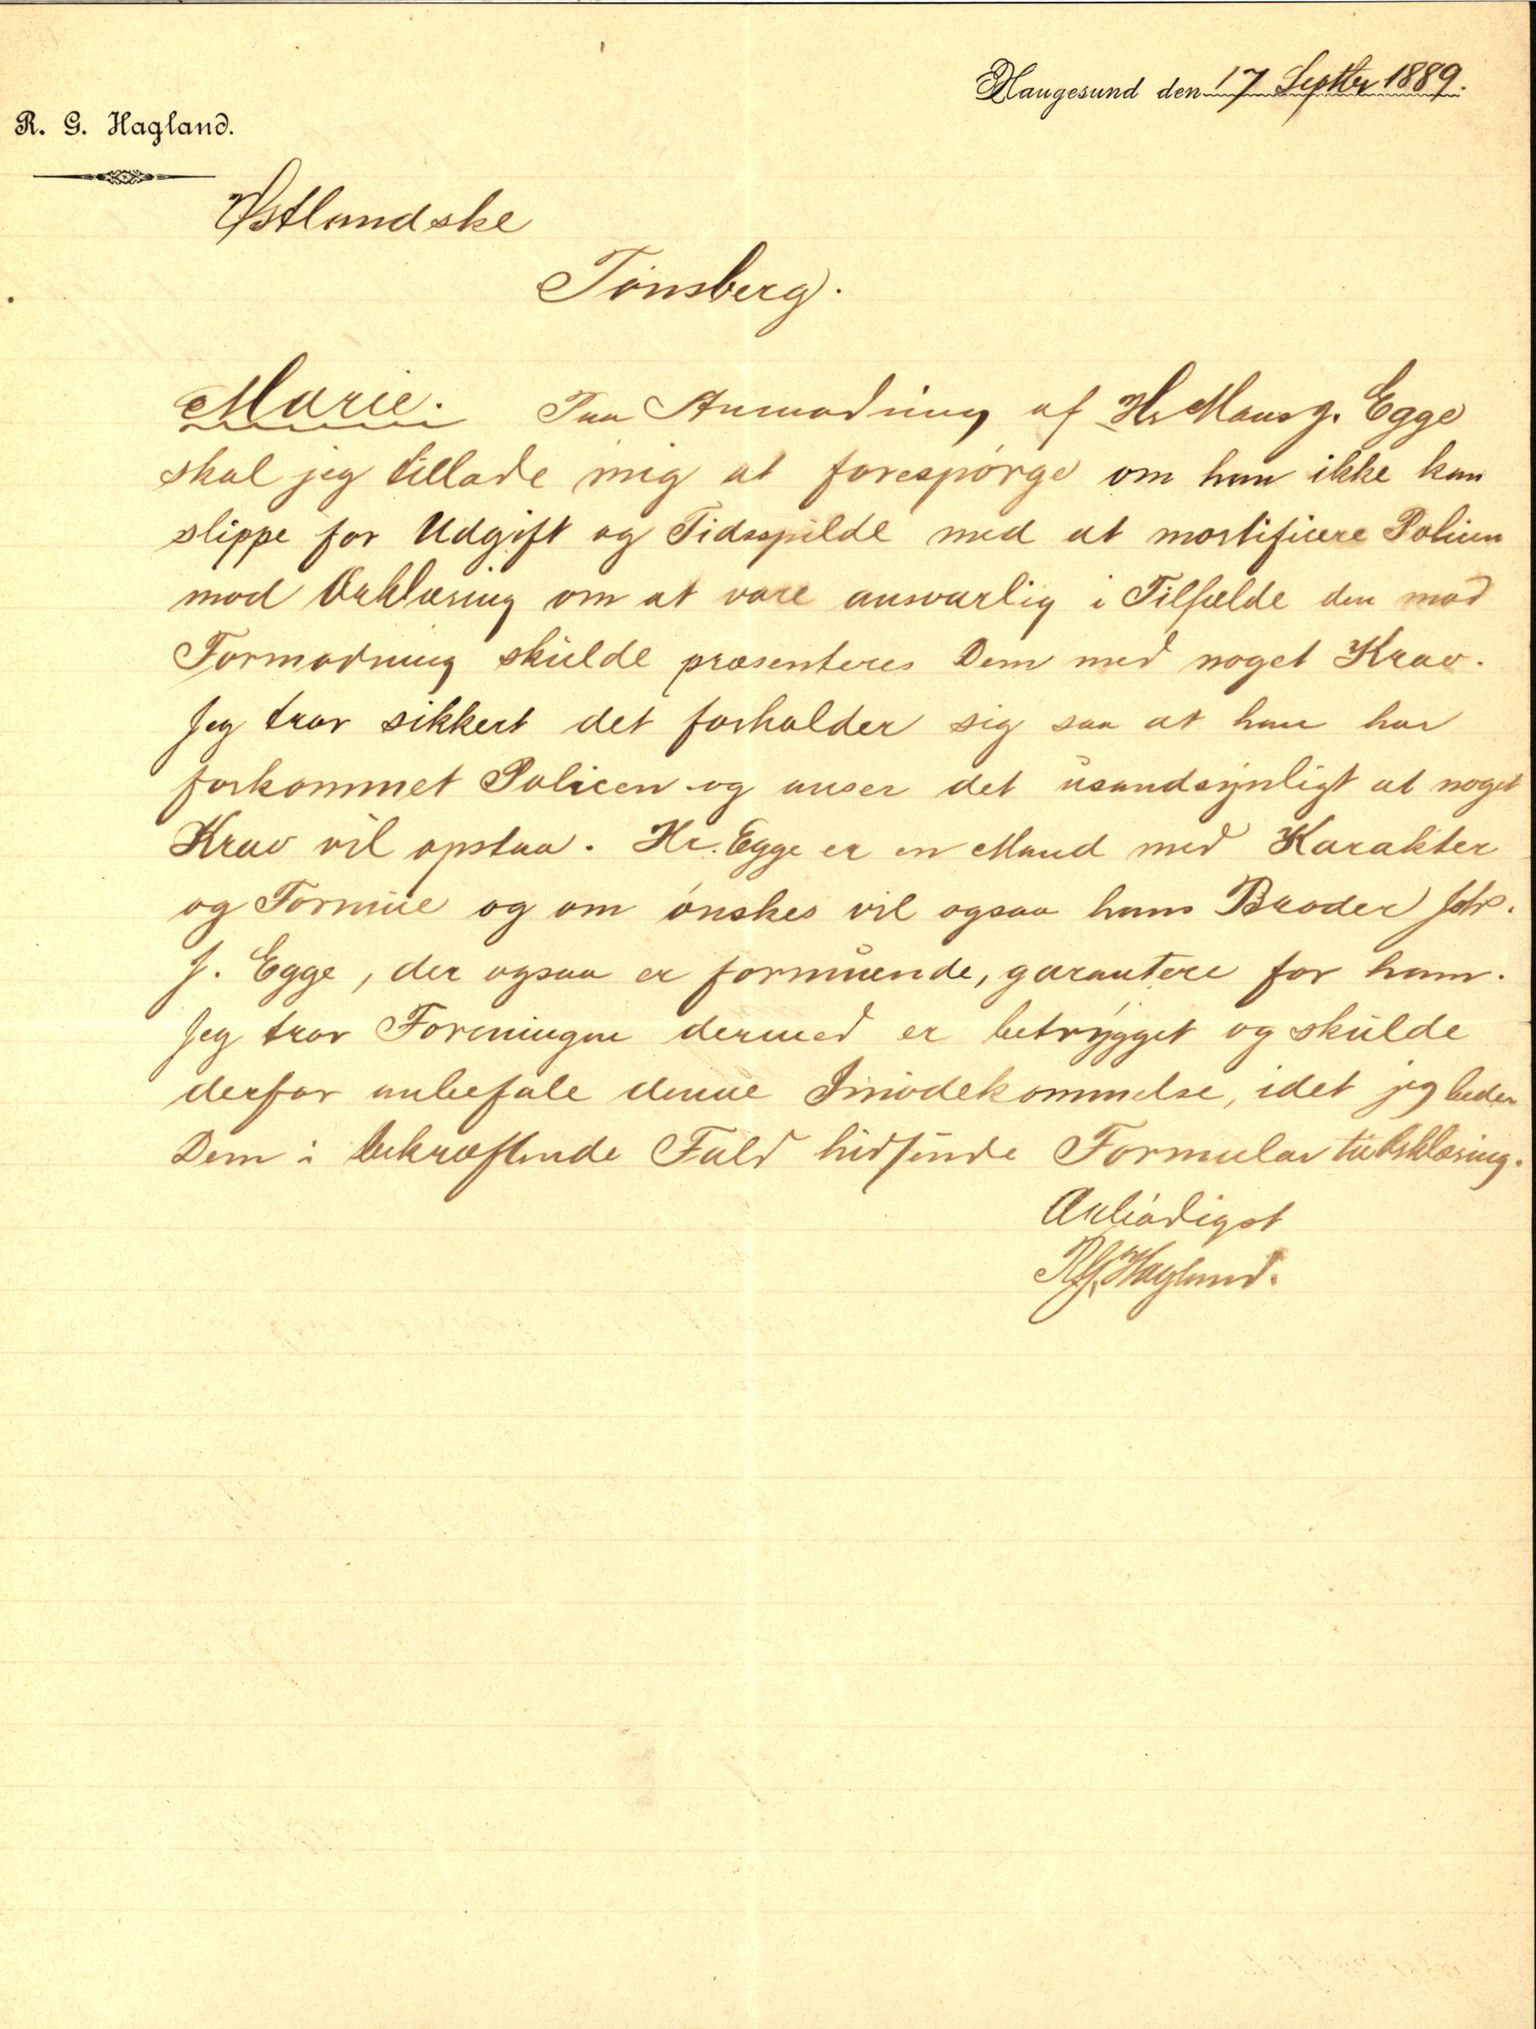 Haugesund den 17 Septbr 1889.
R. G. Hagland.
Østlandske
Tønsberg.
Marie. Paa Anmodning af Hr Mans J. Egge
skal jeg tillade mig at forespørge om han ikke kan
slippe for Udgift og Tidsspilde med at mortificere Policen
mod Erklæring om at være ansvarlig i Tilfælde den mod
Formodning skulde præsenteres Dem med noget Krav.
Jeg tror sikkert det forholder sig saa at han har
forkommet Policen og anser det usandsynligt at noget
Krav vil opstaa. Hr. Egge er en Mand med Karakter
og Formue og om ønskes vil ogsaa hans Broder Johs.
J. Egge, der ogsaa er formuende, garantere for ham.
Jeg tror Foreningen dermed er betrygget og skulde
derfor anbefale denne Imødekommelse, idet jeg beder
Dem i bekræftende Fald hidsende Formular til Erklæring.
Ærbødigst
R. G. Hagland.